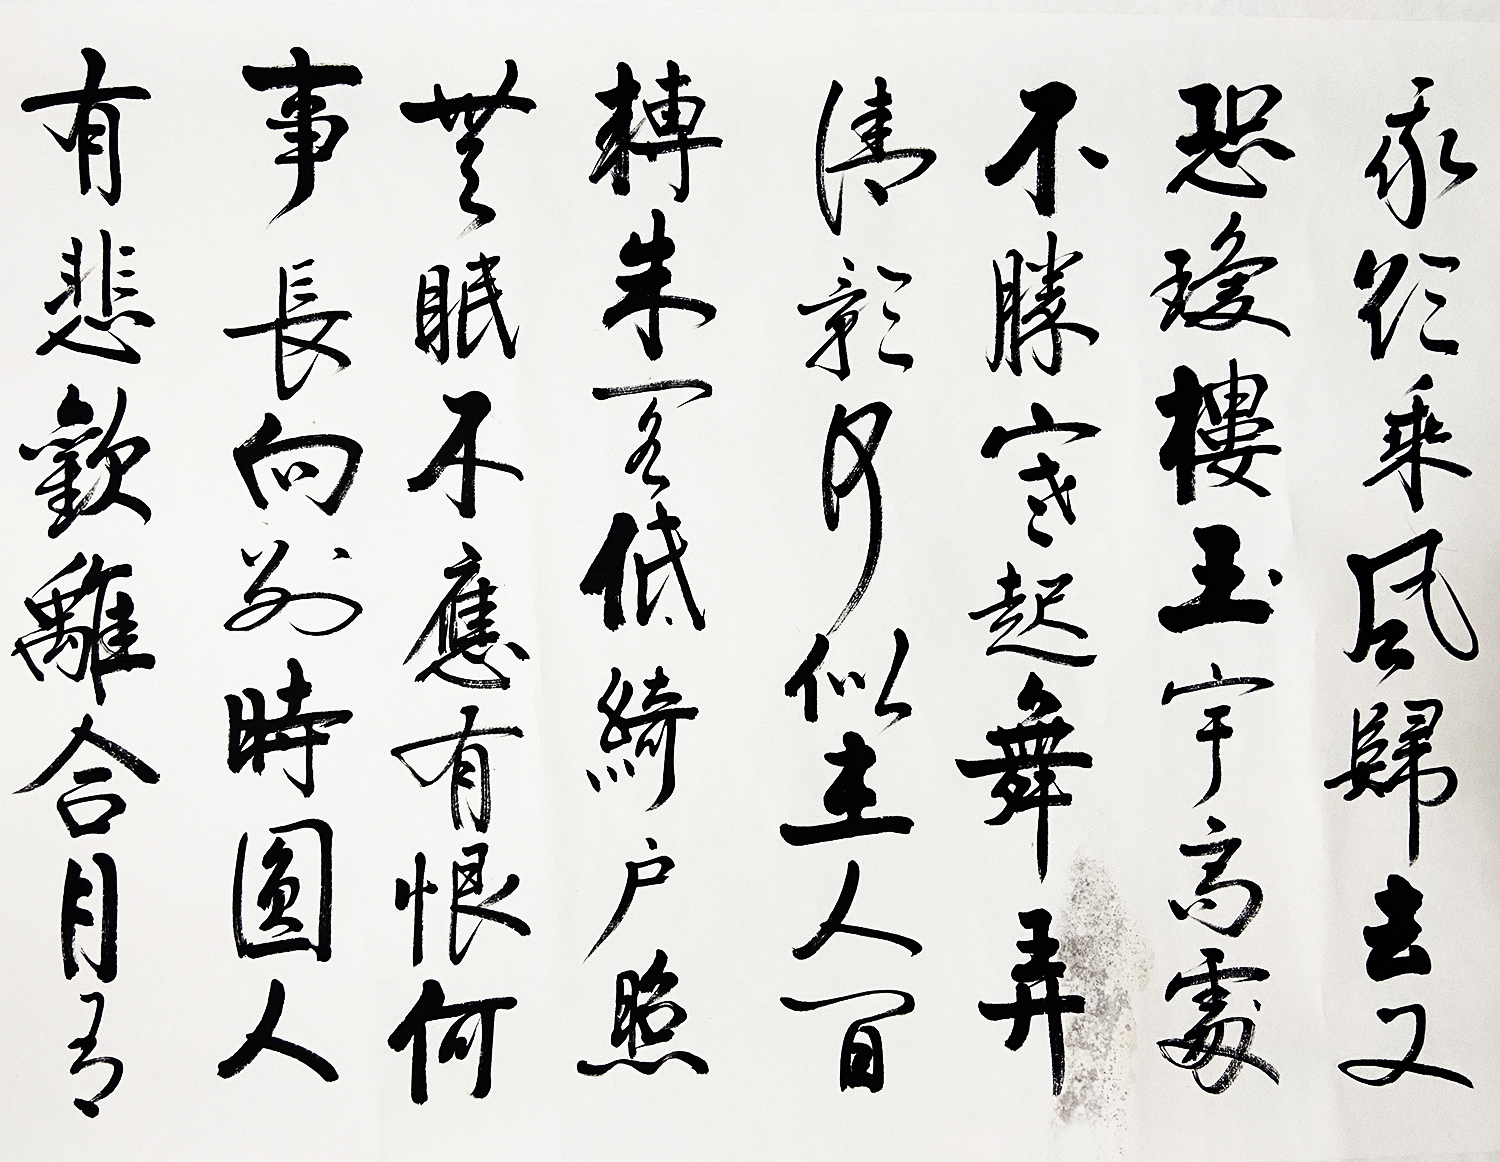 我欲乘風歸去又
恐瓊樓玉宇高處
不勝寒起舞弄
清影何似在人間
轉朱閣低綺户照
無眠不應有恨何
事長向别時圓人
有悲歡離合月有